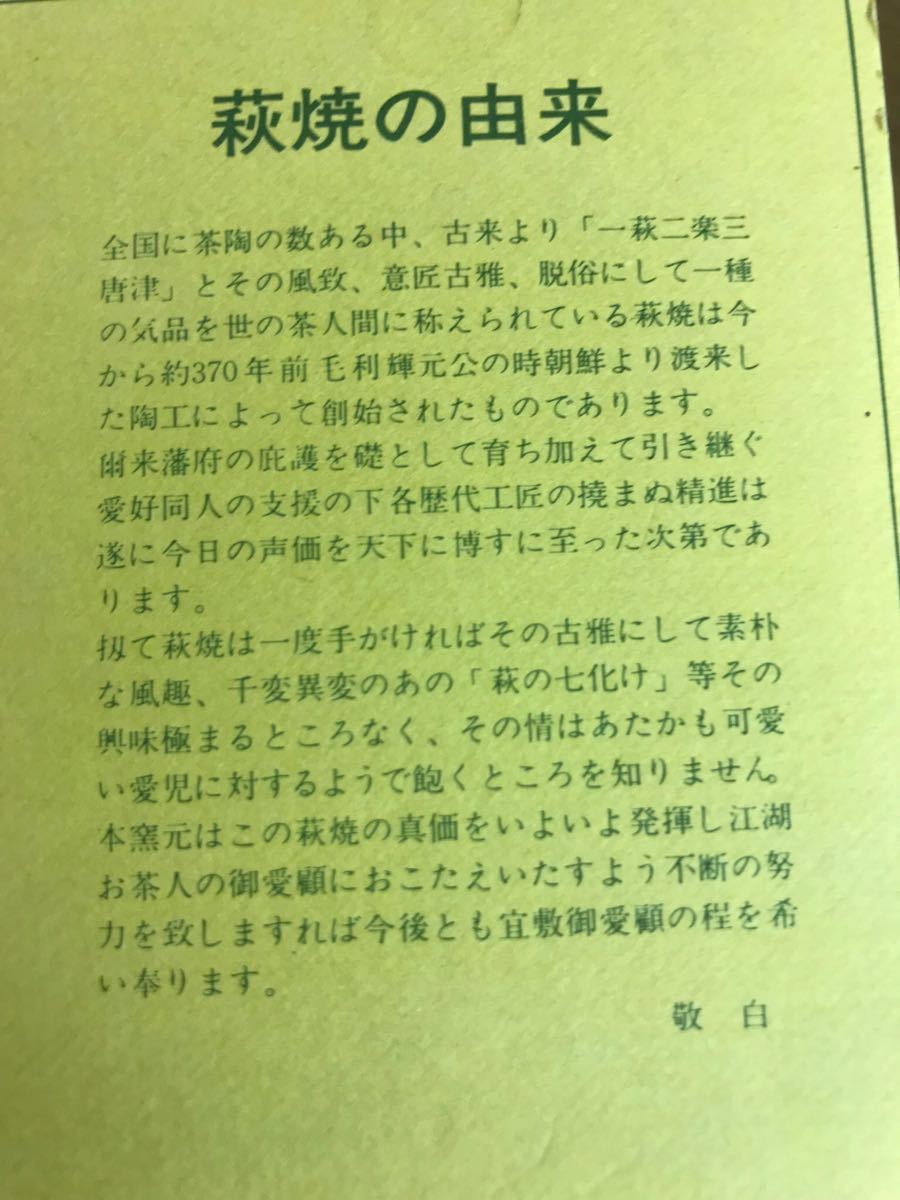 萩焼の由来
全国に茶陶の数ある中、古来より「一萩二楽三
唐津」とその風致、意匠古雅、脱俗にして一種
の気品を世の茶人間に称えられている萩焼は今
から約370年前毛利輝元公の時朝鮮より渡来し
た陶工によって創始されたものであります。
爾来藩府の庇護を礎として育ち加えて引き継ぐ
愛好同人の支援の下各歴代工匠の撓まぬ精進は
遂に今日の声価を天下に博すに至った次第であ
ります。
扨て萩焼は一度手がければその古雅にして素朴
な風趣、千変異変のあの「萩の七化け」等その
興味極まるところなく、その情はあたかも可愛
い愛児に対するようで飽くところを知りません。
本窯元はこの萩焼の真価をいよいよ発揮し江湖
お茶人の御愛顧におこたえいたすよう不断の努
力を致しますれば今後とも宜敷御愛顧の程を希
い奉ります。
敬 白